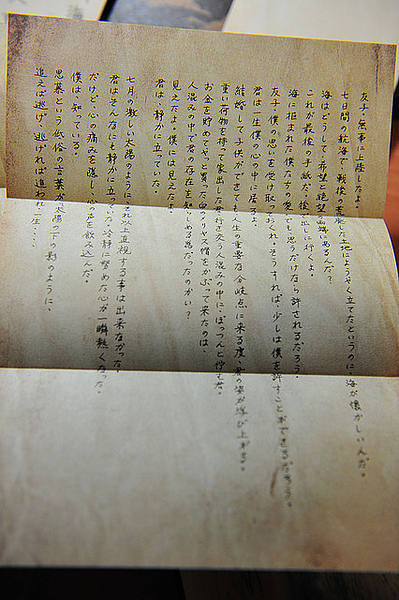 友子、無事に上陸したよ。
七日間の航海で、戦後の荒廃した土地にようやく立てたというのに、海が懐かしいんだ。
海はどうして、希望と絶望の両端にあるんだ？
これが最後の手紙だ。後で出しに行くよ。
海に拒まれた僕たちの愛でも、思うだけなら許されるだろう。
友子、僕の思いを受け取っておくれ。そうすれば、少しは僕を許すことができるだろう。
君は一生僕の心の中に居るよ。
結婚して子供ができても、人生の重要な分岐点に来る度、君の姿が浮び上がる。
重い荷物を持って家出した君、行き交う人混みの中に、ぽつんと佇む君。
お金を貯めてやっと買った白のメリヤス帽をかぶって来たのは、
人混みの中で君の存在を知らしめる為だったのかい？
見えたよ。僕には見えたよ。
君は、静かに立っていた。
七月の激しい太陽のように、それ以上直視する事は出来なかった。
君はそんなにも静かに立っていた。冷静に努めた心が一瞬熱くなった。
だけど、心の痛みを隠し、心の声を飲み込んだ。
僕は、知っている。
思慕という低俗の言葉が太陽の下の影のように、
追えば逃げ、逃げれば追われ一生・・・・